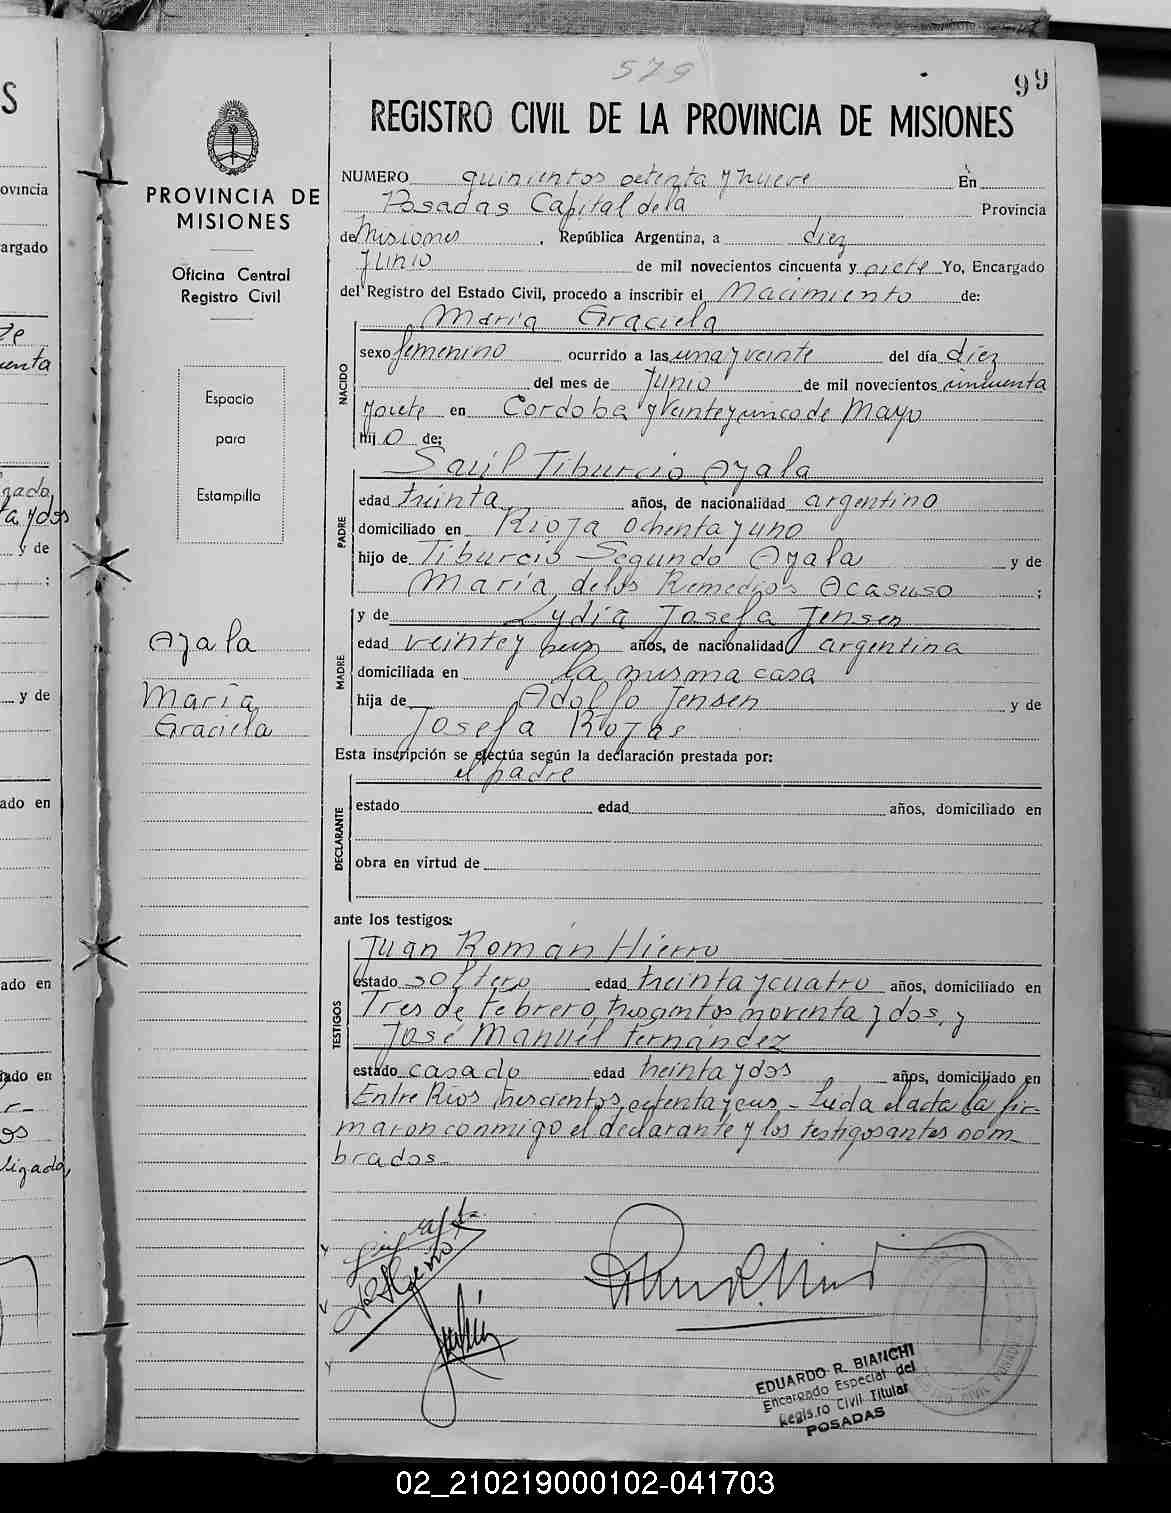 579
99
REGISTRO CIVIL DE LA PROVINCIA DE MISIONES
PROVINCIA DE
MISIONES
Oficina Central
Registro Civil
Espacio
para
Estampilla
Ayala
María
Graciela
NUMERO quinientos setenta y nueve En
Posadas Capital de la Provincia
de Misiones, República Argentina, a diez
Junio de mil novecientos cincuenta y siete Yo, Encargado
del Registro del Estado Civil, procedo a inscribir el Nacimiento de:
NACIDO
María Graciela
sexo femenino ocurrido a las una y veinte del día diez
del mes de Junio de mil novecientos cincuenta
y siete en Córdoba y Veinte y cinco de Mayo
hijo de;
PADRE
Saúl Tiburcio Ayala
edad treinta años, de nacionalidad argentino
domiciliado en Rioja ochenta y uno
hijo de Tiburcio Segundo Ayala y de
María de los Remedios Acasuso ;
MADRE
y de Lydia Josefa Jensen
edad veinte y años, de nacionalidad argentina
domiciliada en la misma casa
hija de Adolfo Jensen y de
Josefa Rojas
Esta inscripción se efectúa según la declaración prestada por:
el padre
DECLARANTE
estado edad años, domiciliado en
obra en virtud de
ante los testigos:
TESTIGOS
Juan Román Hierro
estado soltero edad treinta y cuatro años, domiciliado en
Tres de Febrero, trescientos noventa y dos, y
José Manuel Fernández
estado casado edad treinta y dos años, domiciliado en
Entre Ríos trescientos setenta y seis - Leída el acta la fir-
maron conmigo el declarante y los testigos antes nom-
brados.
EDUARDO R. BIANCHI
Encargado Especial del
Regis.ro Civil Titular
POSADAS
02_210219000102-041703